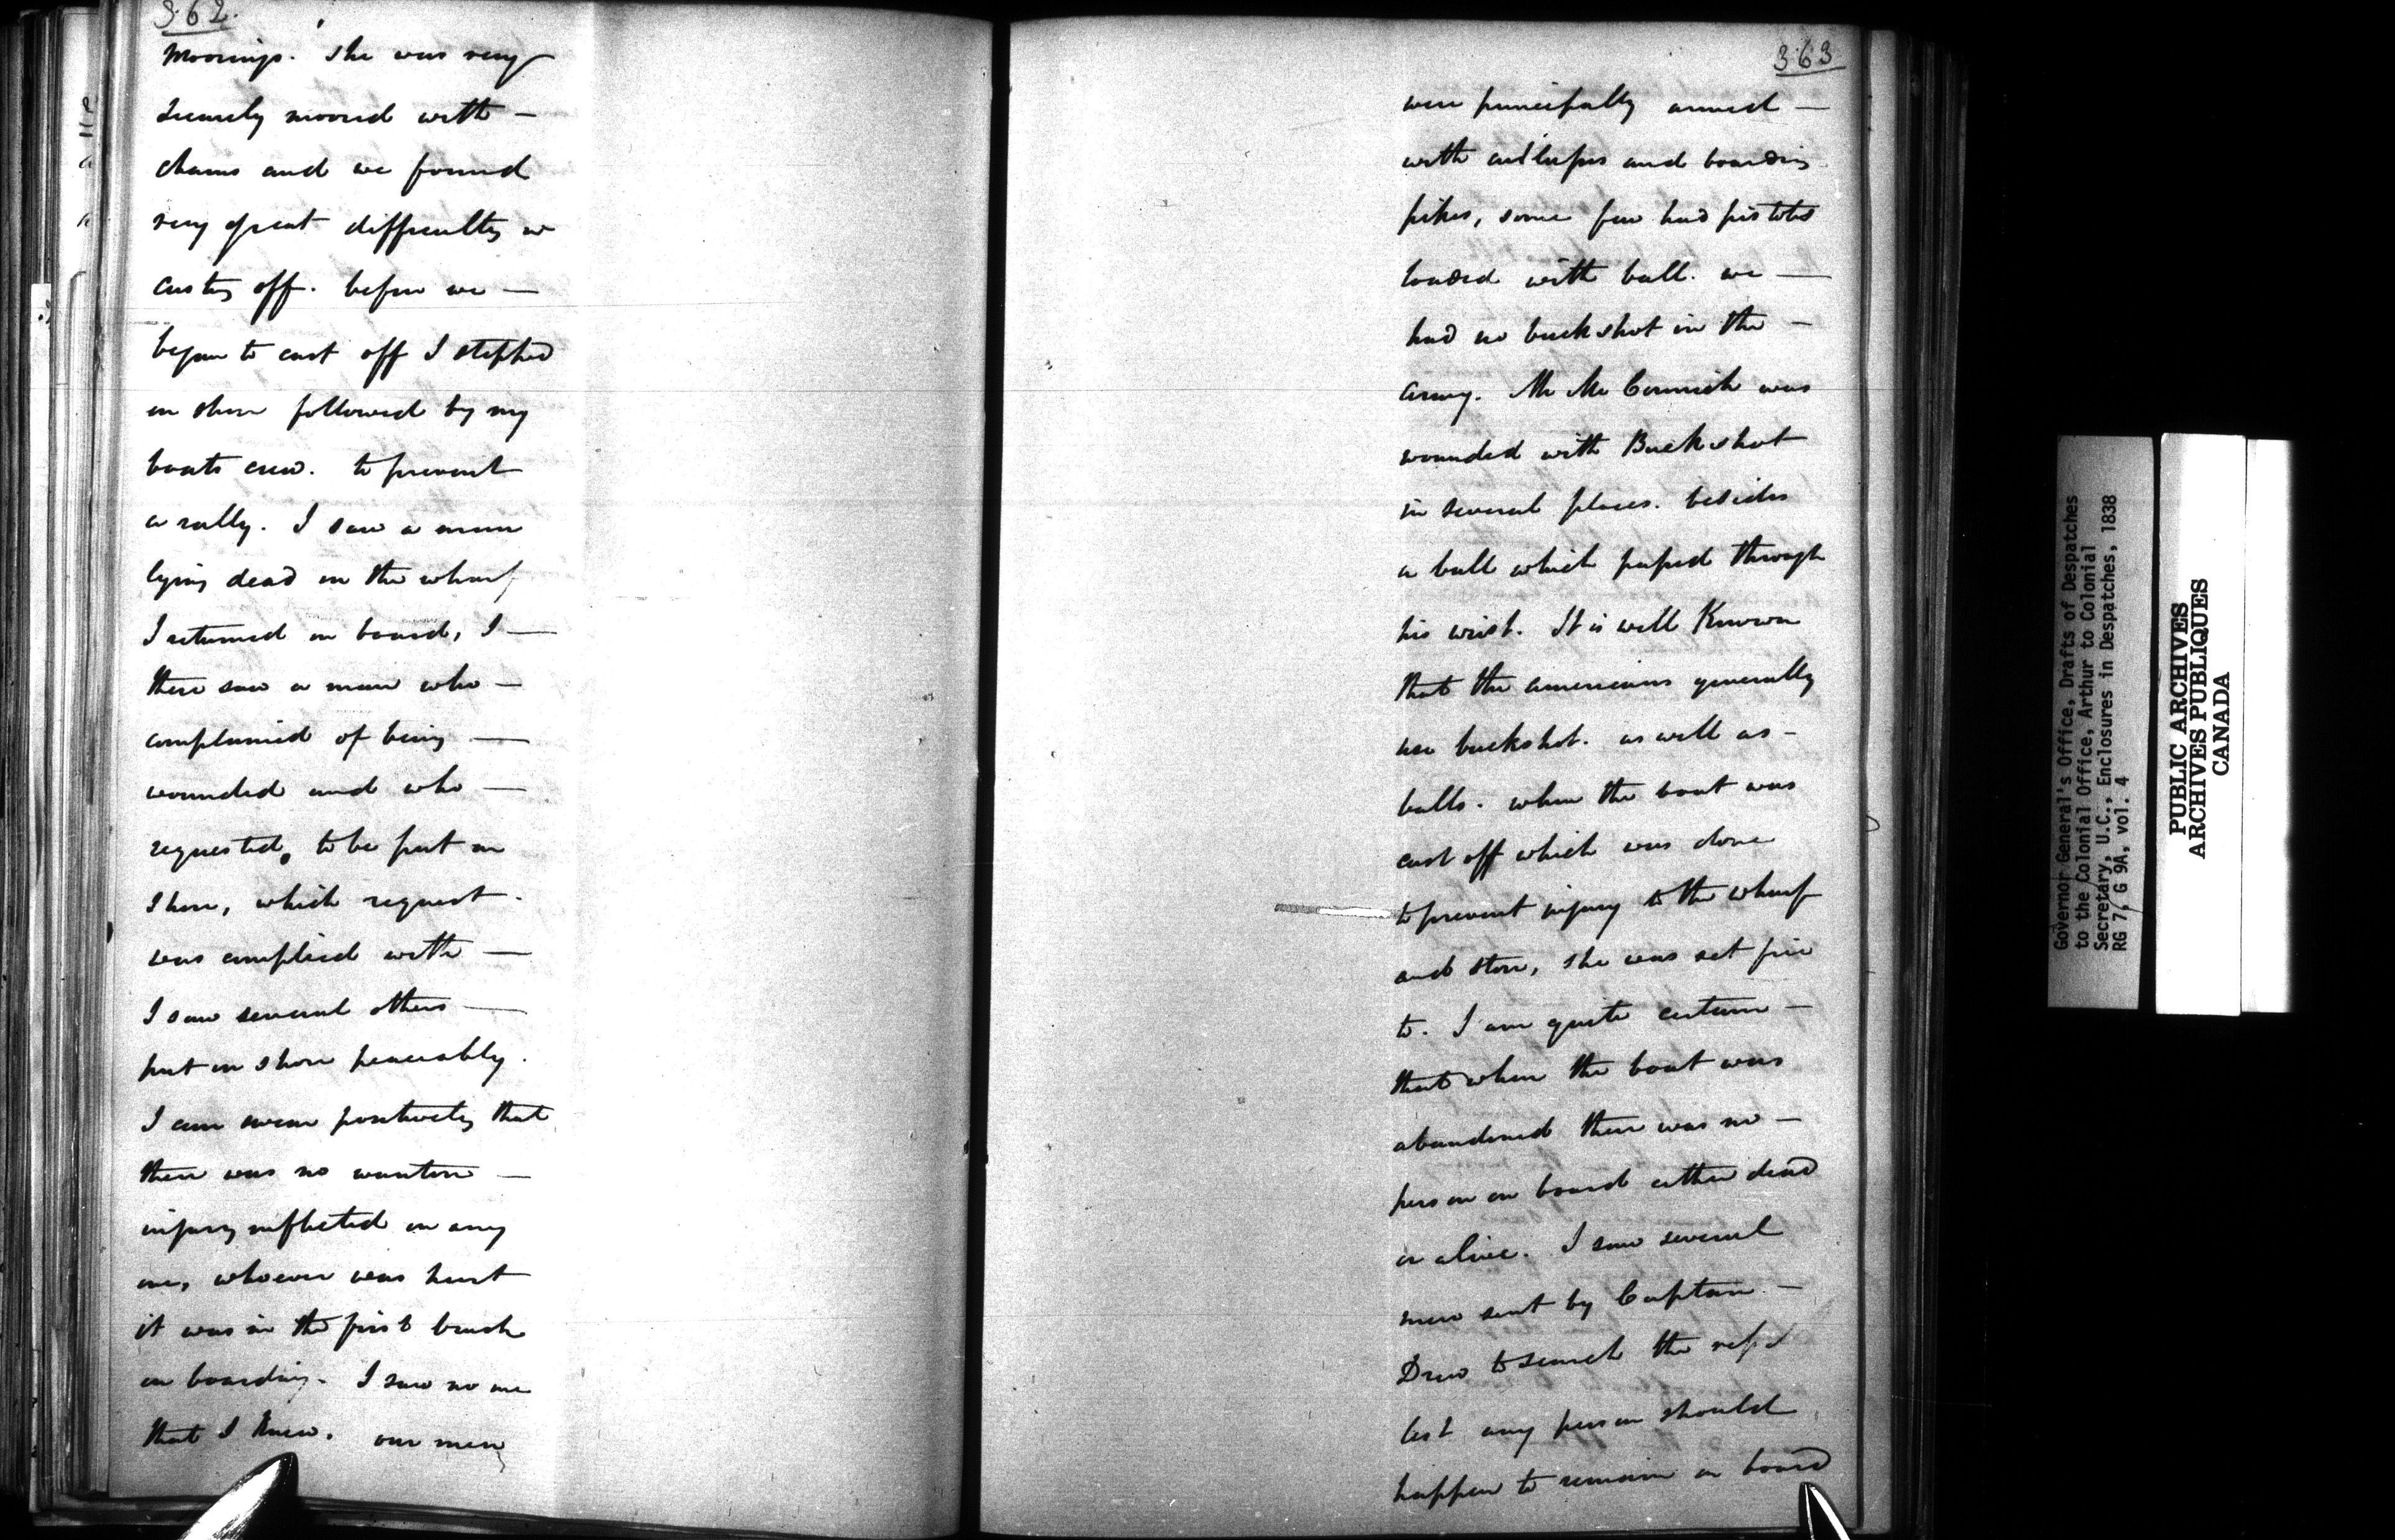 362.
moorings. she was very
securely moored with —
chains and we found
very great difficulty in
casting off. before we —
began to cast off I stepped
on shore followed by my
boats crew. to prevent
a rally. I saw a man
lying dead on the wharf
I returned on board, I —
there saw a man who —
complained of being —
wounded and who —
requested, to be put on
shore, which request.
was complied with —
I saw several others —
put on shore peaceably.
I can swear positively that
there was no wanton —
injury inflicted on any
one, whoever was hurt
it was in the first brush
on boarding. I saw no one
that I knew. our men
363
were principally armed —
with cutlasses and boarding
pikes, some few had pistols
loaded with ball. we —
had no buckshot in the —
army. Mr McCormick was
wounded with Buckshot
in several places. besides
a ball which passed through
his wrist. It is well Known
that the americans generally
use buckshot. as well as —
balls. when the boat was
cast off which was done
to prevent injury to the wharf
and store, she was set fire
to. I am quite certain —
that when the boat was
abandoned there was no —
person on board either dead
or alive. I saw several
men sent by Captain —
Drew to search the vessel
lest any person should
happen to remain on board
Governor General's Office, Drafts of Despatches
to the Colonial Office, Arthur to Colonial
Secretary, U.C., Enclosures in Despatches, 1838
RG 7, G 9A, vol. 4
PUBLIC ARCHIVES
ARCHIVES PUBLIQUES
CANADA